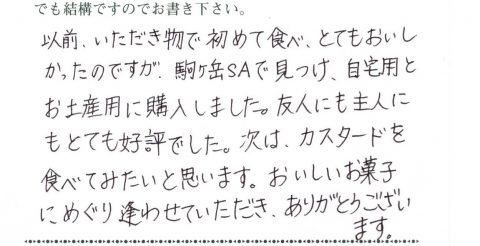 でも結構ですのでお書き下さい。
以前、いただき物で初めて食べ、とてもおいし
かったのですが、駒ヶ岳SAで見つけ、自宅用と
お土産用に購入しました。友人にも主人に
もとても好評でした。次は、カスタードを
食べてみたいと思います。おいしいお菓子
にめぐり逢わせていただき、ありがとうござい
ます。